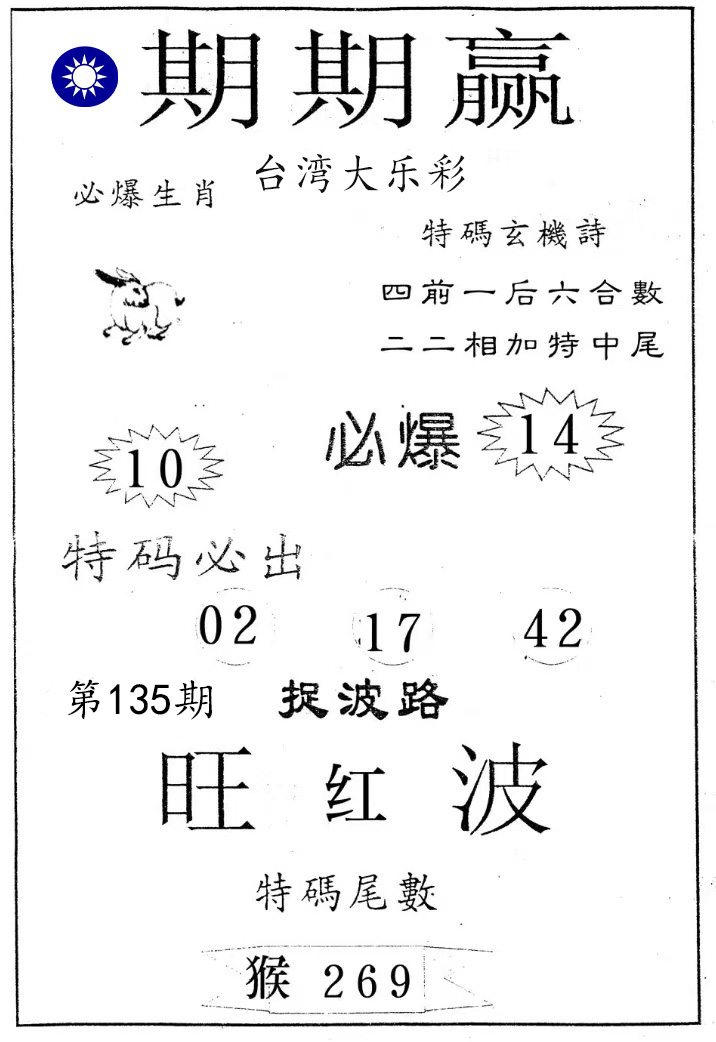 期期赢
台湾大乐彩
必爆生肖
特碼玄機詩
四前一后六合數
二二相加特中尾
必爆 14
10
特码必出
02 17 42
第135期 捉波路
旺红波
特碼尾數
猴 269